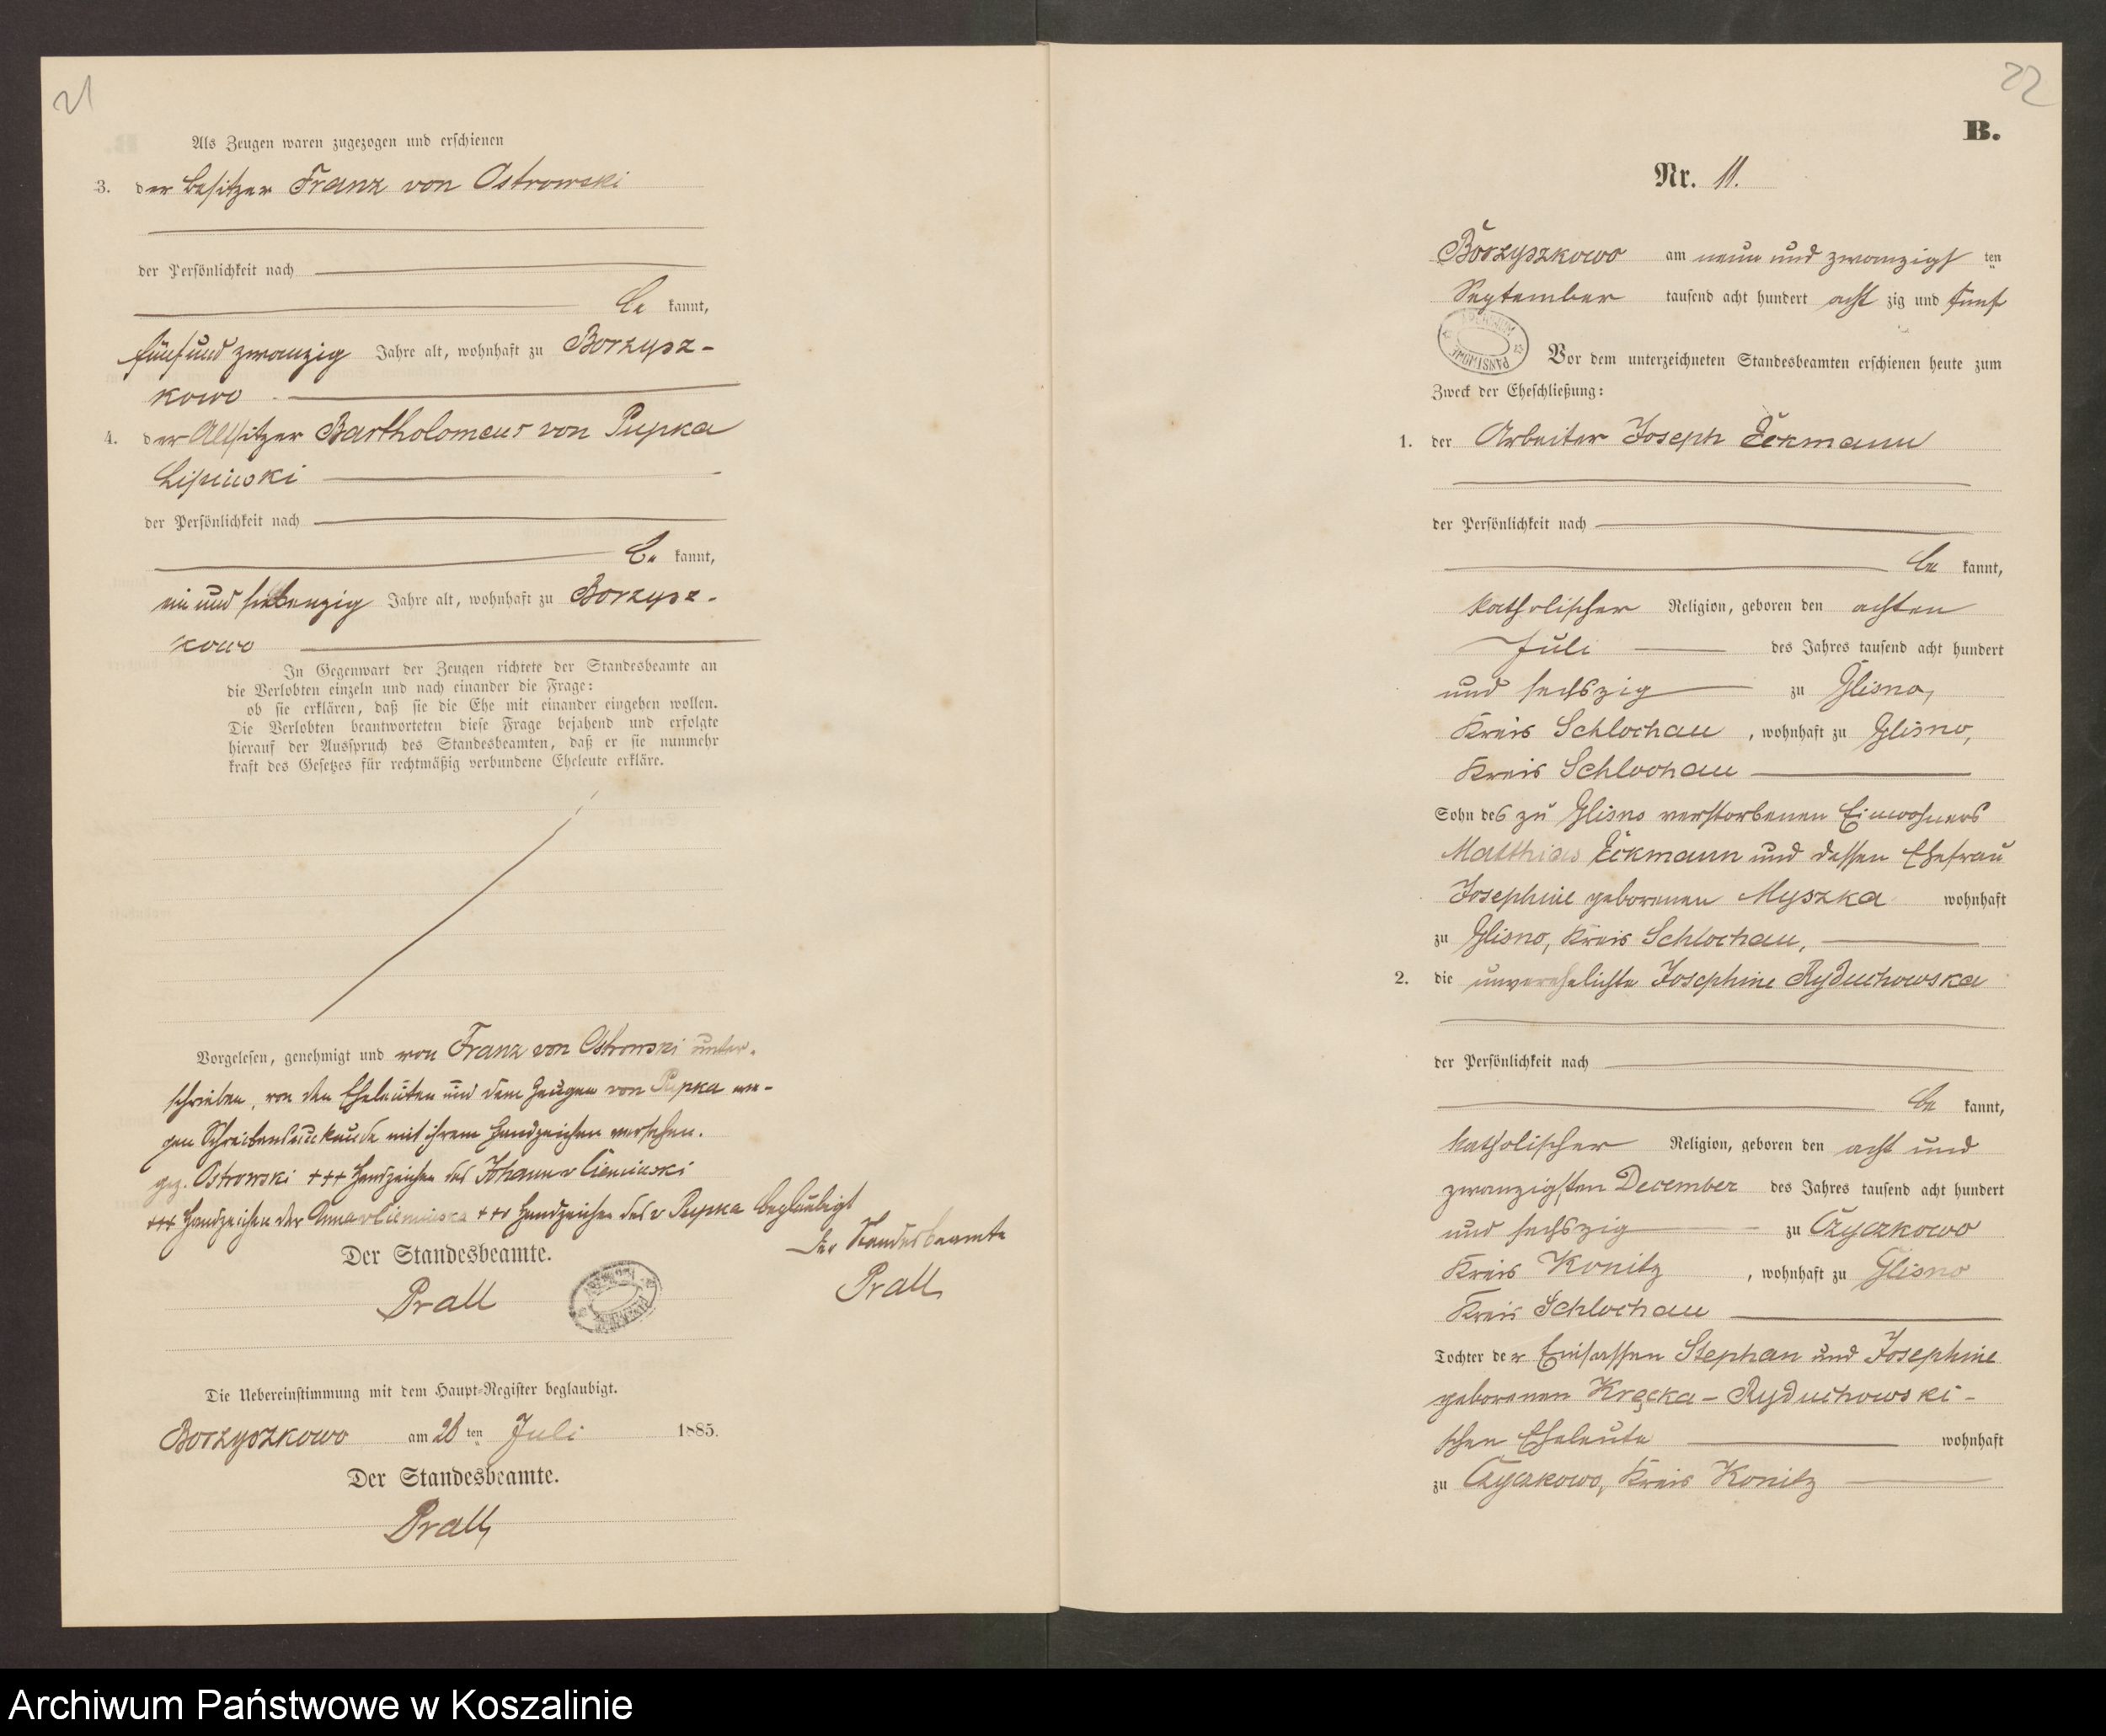 21
Als Zeugen waren zugezogen und erschienen
3. der Besitzer Franz von Ostrowski
der Persönlichkeit nach
be kannt,
fünf und zwanzig Jahre alt, wohnhaft zu Borzysz-
kowo
4. der Altsitzer Bartholomeus von Pupka
Lipinski
der Persönlichkeit nach
be kannt,
ein und siebenzig Jahre alt, wohnhaft zu Borzysz-
kowo
In Gegenwart der Zeugen richtete der Standesbeamte an
die Verlobten einzeln und nach einander die Frage:
ob sie erklären, daß sie die Ehe mit einander eingehen wollen.
Die Verlobten beantworteten diese Frage bejahend und erfolgte
hierauf der Ausspruch des Standesbeamten, daß er sie nunmehr
kraft des Gesetzes für rechtmäßig verbundene Eheleute erkläre.
Vorgelesen, genehmigt und von Franz von Ostrowski unter-
schrieben, von den Eheleuten und dem Zeugen von Pupka we-
gen Schreibensunkunde mit ihrem Handzeichen versehen.
gez. Ostrowski +++ Handzeichen des Johann v Cieminski
+++ Handzeichen der Anna v Cieminska +++ Handzeichen des v Pupka beglaubigt
Der Standesbeamte
Der Standesbeamte.
Prall
Prall
Die Uebereinstimmung mit dem Haupt-Register beglaubigt.
Borzyszkowo am 20 ten Juli 1885.
Der Standesbeamte.
Prall
22
B.
Nr. 11.
Borzyszkowo am neun und zwanzigs ten
September tausend acht hundert acht zig und fünf
Vor dem unterzeichneten Standesbeamten erschienen heute zum
Zweck der Eheschließung:
1. der Arbeiter Joseph Eckmann
der Persönlichkeit nach
be kannt,
katholischer Religion, geboren den achten
Juli des Jahres tausend acht hundert
und sechszig zu Glisno,
Kreis Schlochau, wohnhaft zu Glisno,
Kreis Schlochau
Sohn des zu Glisno verstorbenen Einwohners
Matthias Eckmann und dessen Ehefrau
Josephine geborenen Myszka wohnhaft
zu Glisno, Kreis Schlochau,
2. die unverehelichte Josephine Ryduchowska
der Persönlichkeit nach
be kannt,
katholischer Religion, geboren den acht und
zwanzigsten December des Jahres tausend acht hundert
und sechszig zu Czyczkowo
Kreis Konitz, wohnhaft zu Glisno
Kreis Schlochau
Tochter der Einsassen Stephan und Josephine
geborenen Kręcka-Ryduchowski-
schen Eheleute wohnhaft
zu Czyczkowo, Kreis Konitz
Archiwum Państwowe w Koszalinie